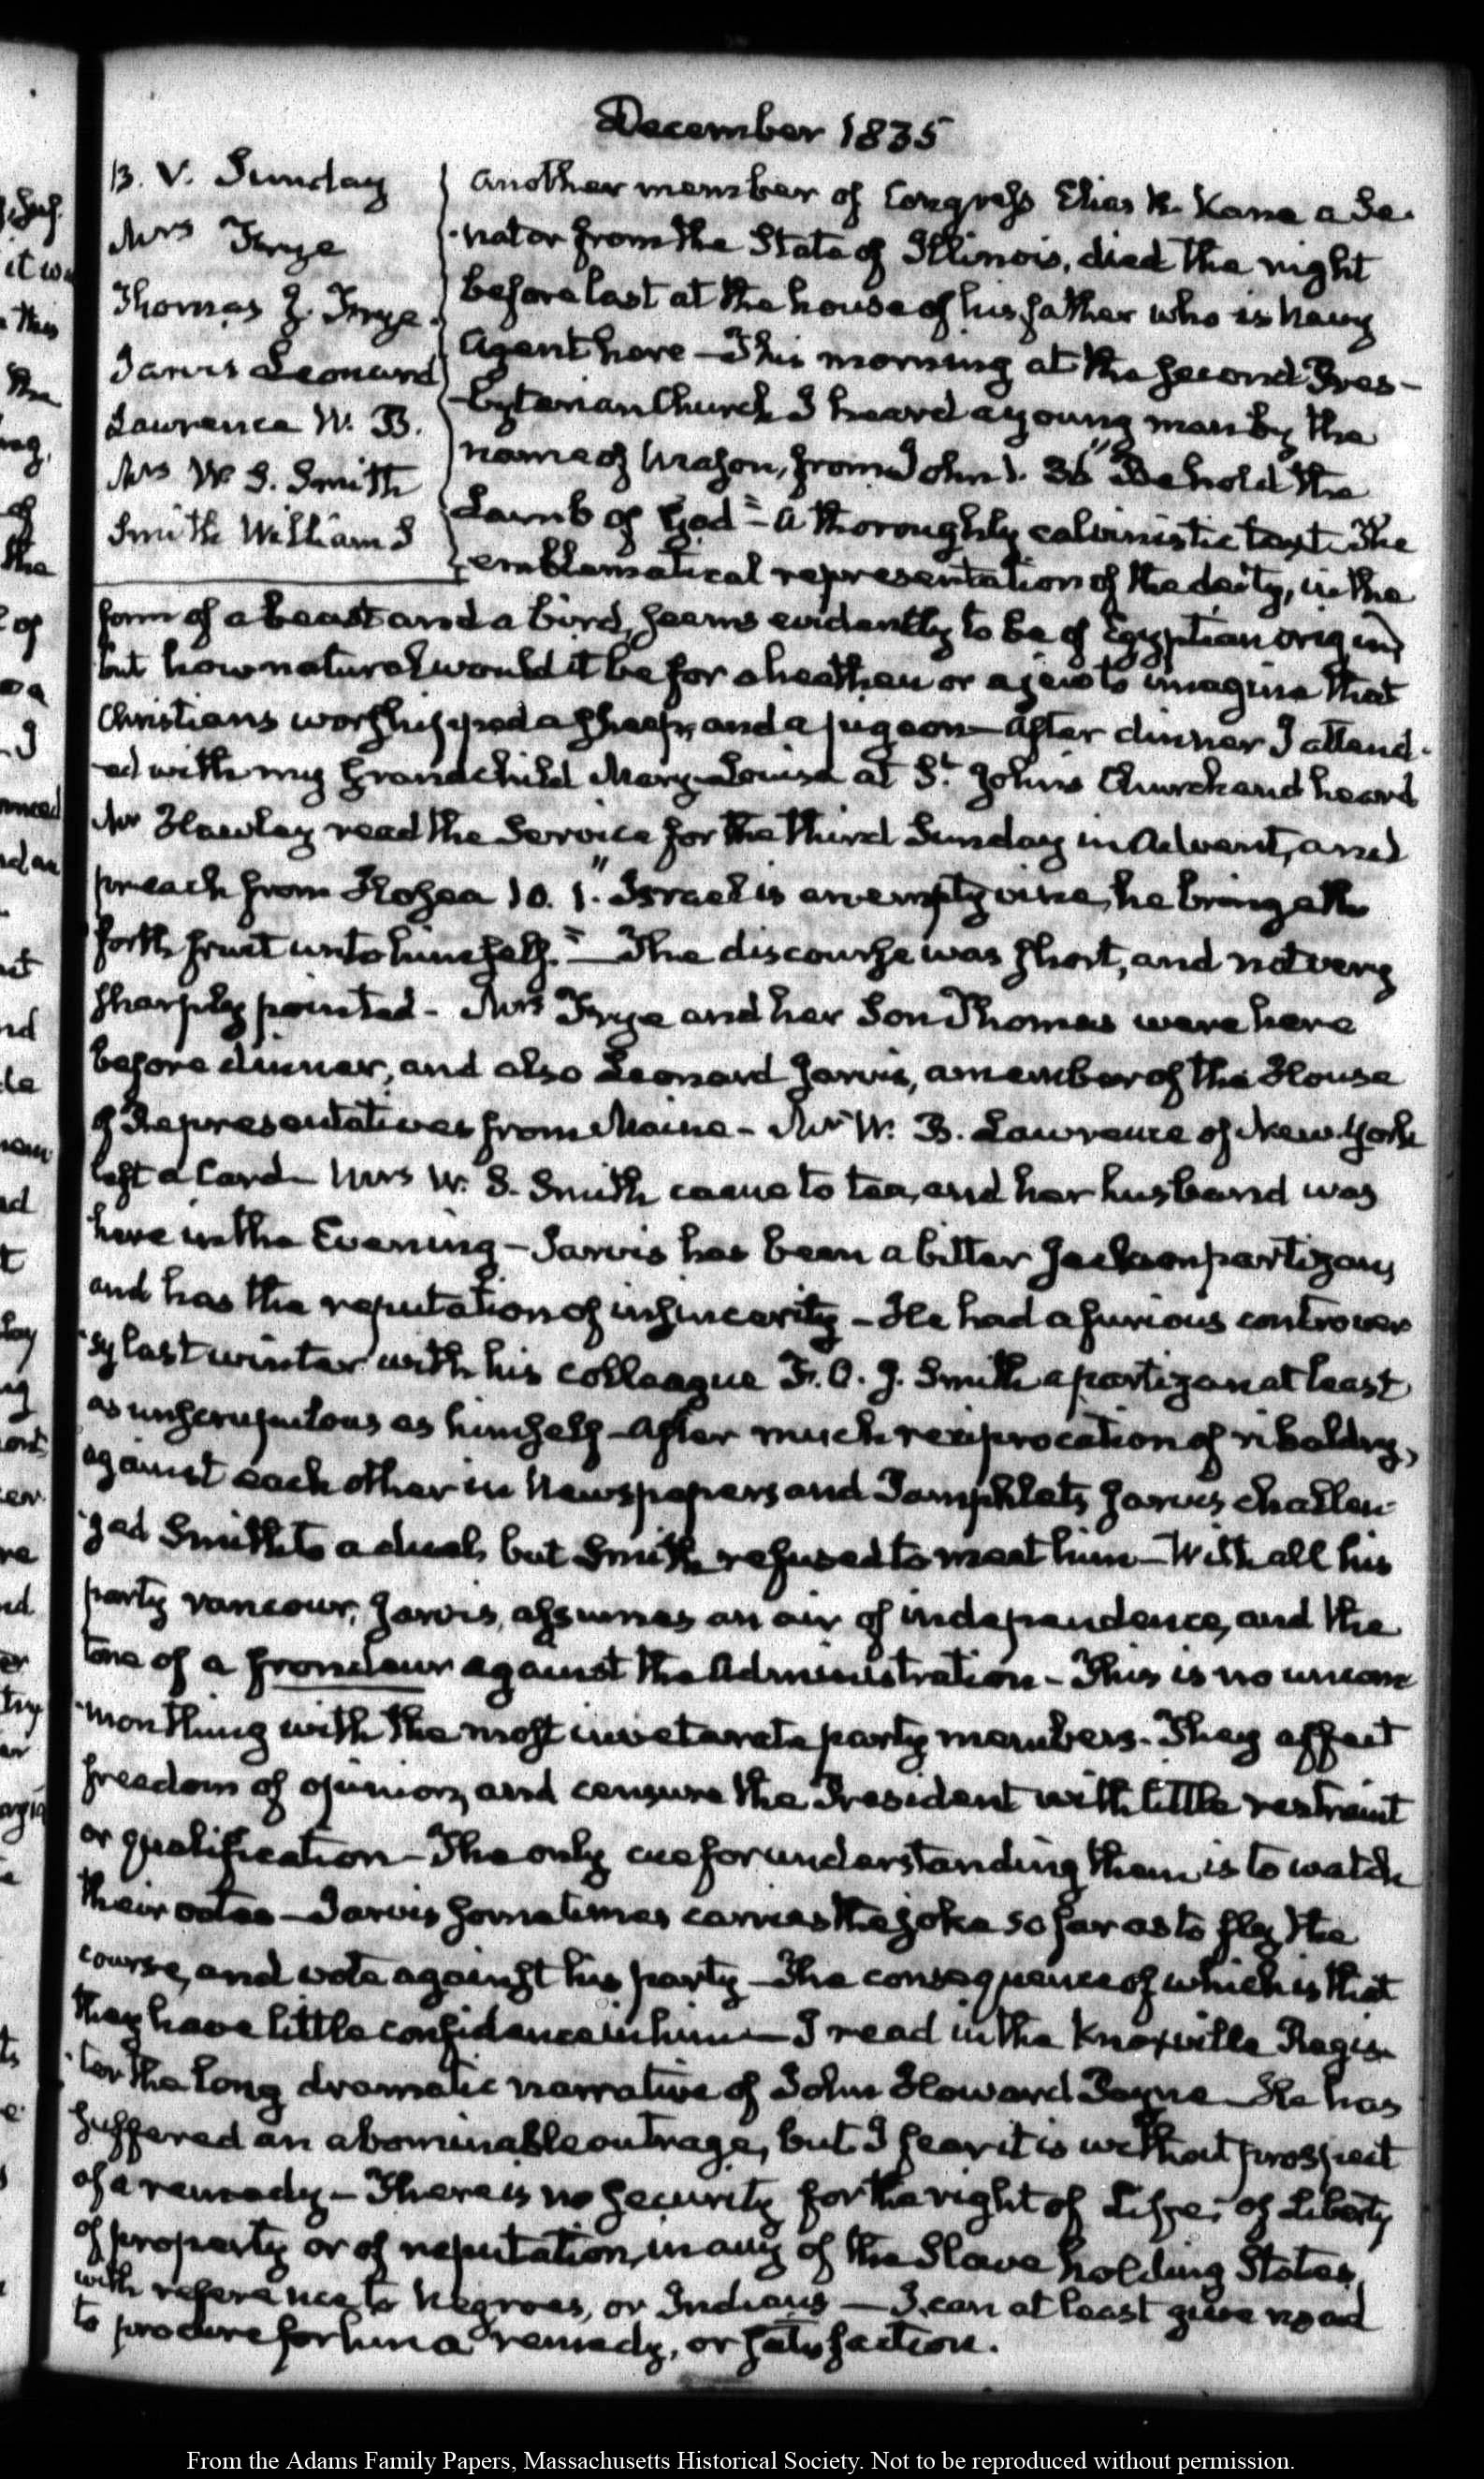 December 1835
13. V. Sunday
Mrs Frye
Thomas J. Frye.
Jarvis Leonard
Lawrence W. B.
Mrs W. S. Smith
Smith William S
Another member of Congress Elias K. Kane a Se-
-nator from the State of Illinois, died the night
before last at the house of his father who is Navy
Agent here — This morning at the second Pres-
-byterian Church I heard a young man by the
name of Mason, from John 1. 36 "Behold the
Lamb of God" — A thoroughly calvinistic text. The
emblematical representation of the deity, in the
form of a beast and a bird, seems evidently to be of Egyptian origin,
but how natural would it be for a heathen or a jew to imagine that
Christians worshipped a sheep, and a pigeon — After dinner I attend-
-ed with my Grandchild Mary-Louisa at St. John's Church and heard
Mr Hawley read the Service for the third Sunday in Advent, and
preach from Hosea 10. 1. "Israel is an empty vine, he bringeth
forth fruit unto himself." — The discourse was short, and not very
sharply pointed - Mrs Frye and her Son Thomas were here
before dinner, and also Leonard Jarvis, a member of the House
of Representatives from Maine - Mr W. B. Lawrence of New-York
left a Card — Mrs W. S. Smith came to tea, and her husband was
here in the Evening — Jarvis has been a bitter Jackson partizan,
and has the reputation of insincerity — He had a furious controver
-sy last winter with his colleague F. O. J. Smith a partizan at least
as unscrupulous as himself — After much reciprocation of ribaldry,
against each other in Newspapers and Pamphlets, Jarvis challen-
-ged Smith to a duel, but Smith refused to meet him — With all his
party rancour, Jarvis, assumes an air of independence, and the
tone of a frondeur against the Administration - This is no uncom
-mon thing with the most inveterate party members. They affect
freedom of opinion, and censure the President with little restraint
or qualification — The only cue for understanding them is to watch
their votes — Jarvis sometimes carries the joke so far as to fly the
course, and vote against his party — The consequence of which is that
they have little confidence in him — I read in the Knoxville Regis-
-ter the long dramatic narrative of John Howard Payne — He has
suffered an abominable outrage, but I fear it is without prospect
of a remedy — There is no security for the right of Life, of Liberty
of property or of reputation, in any of the Slave holding States,
with reference to Negroes, or Indians — I can at least give no aid
to procure for him a remedy, or satisfaction.
From the Adams Family Papers, Massachusetts Historical Society. Not to be reproduced without permission.